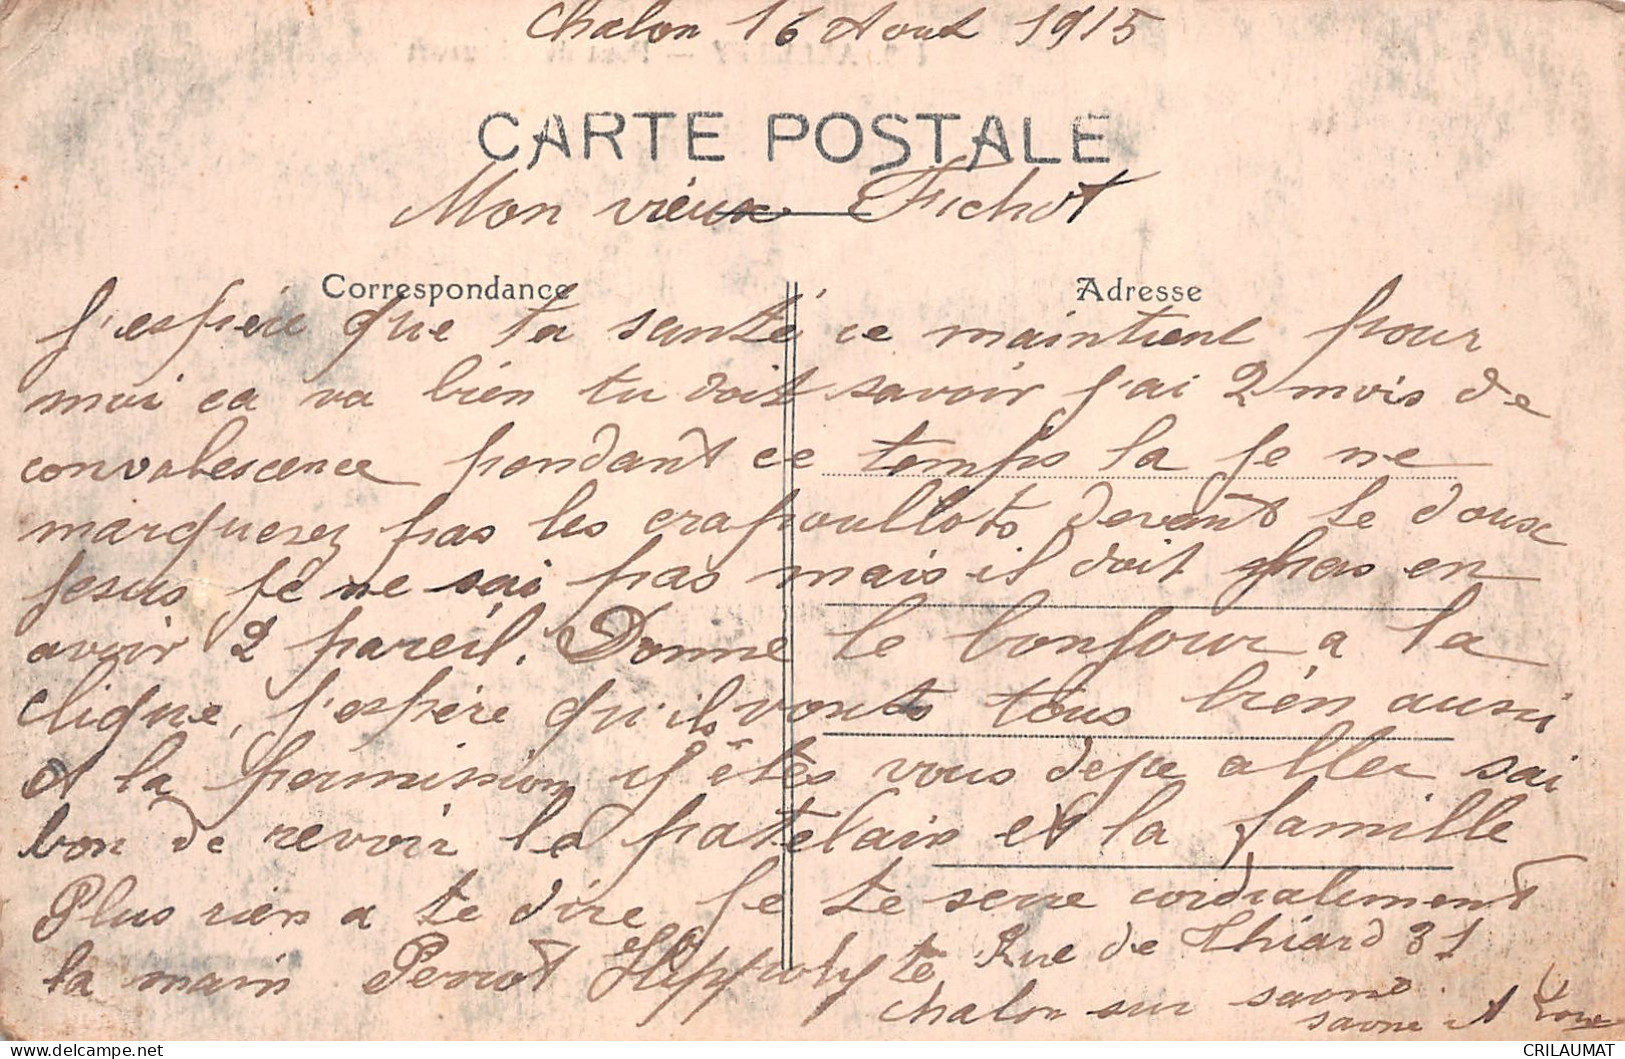 Chalon 16 Aout 1915
CARTE POSTALE
Mon vieux Fichot
Correspondance
Adresse
j'espére que ta santé ce maintient pour
moi ca va bien tu doit savoir j'ai 2 mois de
convalescence pendant ce temps la je ne
marquerez pas les crapouillots devant le doux
jesus je ne sai pas mais il doit pas en
avoir 2 pareil. Donne le bonjour a la
clique, j'espére qu'ils vonts tous bien aussi
et la permission y étes vous deja aller sai
bon de revoir le patelain et la famille
Plus rien a te dire je te serre cordialement
la main Perrot Hippolyte Rue de Thiard 31
Chalon sur saone
saone et Loire
CRILAUMAT